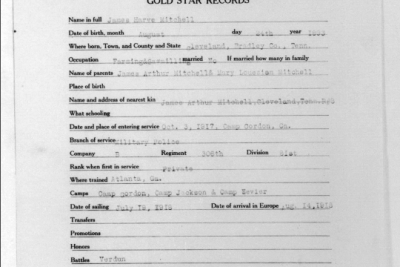 GOLD STAR RECORDS
Name in full James Marvr Mitchell
Date of birth, month August 24th year
Where born, Town, and County and State Cleveland, Bradley Co., Tenn.
Occupation Farming married No If married how many in family
Name of parents James Arthur Mitchell& Mary Mitchell
Place of birth
Name and address of nearest kin James Arthur Mitchell,Cleveland,Tenn.
What schooling
Date and place of entering service Oct. 1917, Camp Gordon, Ga.
Branch of service Military Police
Company D Regiment 306th Division 81st
Rank when first in service Private
Where trained Atlanta, Ga.
Camps Camp gordon, Camp Jackson & Camp Sevier
Date of sailing July 1918 Date of arrival in Europe Aug. 1918
Transfers
Promotions
Honors
Battles Verdun